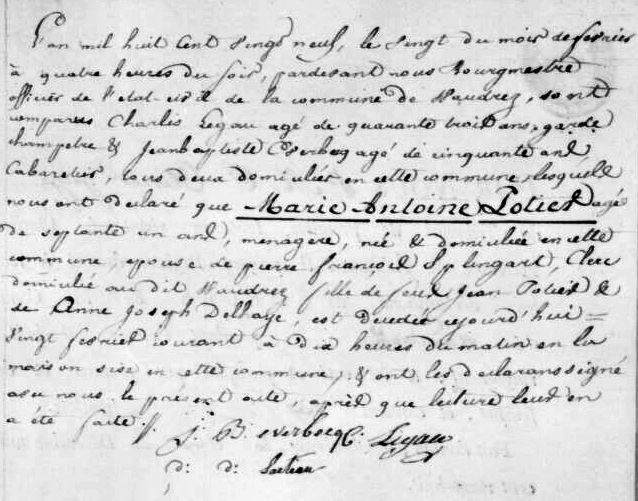 L'an mil huit Cent vingt neuf, le vingt du mois de fevrier
à quatre heures du soir, pardevant nous Bourgmestre
officier de l'etat-civil de la commune de Vaudrez, sont
comparus Charles Legau agé de quarante trois ans, garde
champetre & Jeanbaptiste Overbecq agé de cinquante ans,
Cabaretier, tous deux domiciliés en cette commune, lesquels
nous ont déclaré que Marie Antoine Potier agée
de septante un ans, menagère, née & domiciliée en cette
commune, epouse de pierre françois Splingart, Clerc
domicilié au dit Vaudrez fille de feux Jean Potier &
de Anne Joseph Delhaye, est decedée cejourd'hui =
vingt fevrier courant à dix heures du matin en la
maison sise en cette commune, & ont les declarans signé
avec nous le présent acte, après que lecture leur en
a été faite /.
J. B. overbecq C. Legau
D. D.